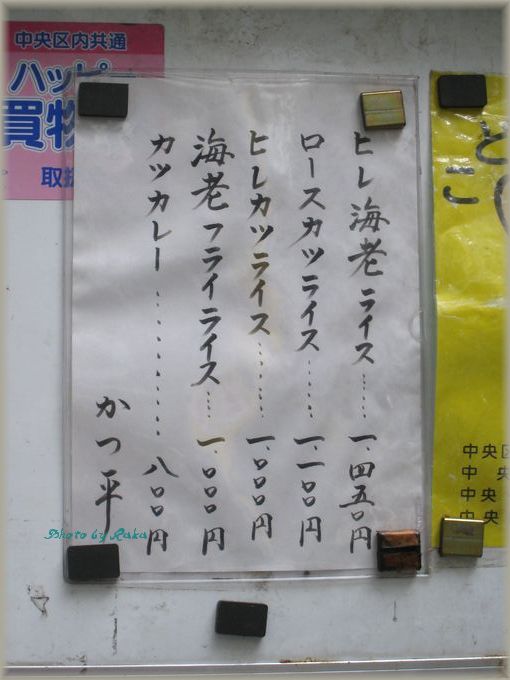 ヒレ海老ライス……一、四五〇円
ロースカツライス……一、一〇〇円
ヒレカツライス……一、〇〇〇円
海老フライライス……一、〇〇〇円
カツカレー…………八〇〇円
かつ平
中央区内共通
ハッピ
買物
取扱
と
こ
中央区
中央
中央
中央
Photo by Raka